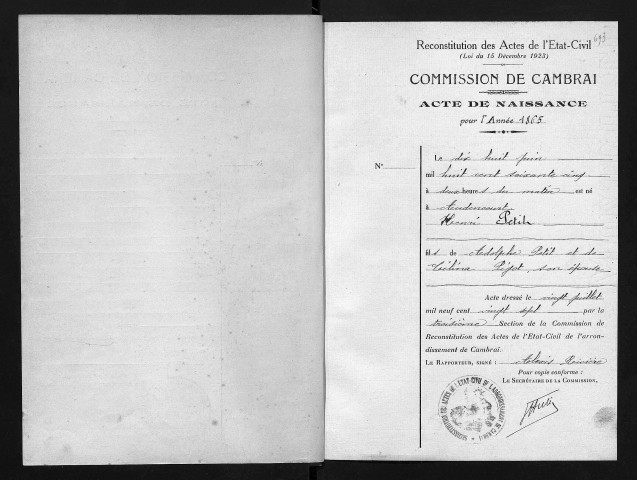 693
Reconstitution des Actes de l'Etat-Civil
(Loi du 15 Décembre 1923)
COMMISSION DE CAMBRAI
ACTE DE NAISSANCE
pour l'Année 1865
N°
Le dix huit juin
mil huit cent soixante cinq
à deux heures du matin est né
à Audencourt
Henri Petit
fils de Adolphe Petit et de
Célina Pépot, son épouse
Acte dressé le vingt juillet
mil neuf cent vingt sept par la
troisième Section de la Commission de
Reconstitution des Actes de l'Etat-Civil de l'arron-
dissement de Cambrai.
Le Rapporteur, signé :
Pour copie conforme :
Le Secrétaire de la Commission,